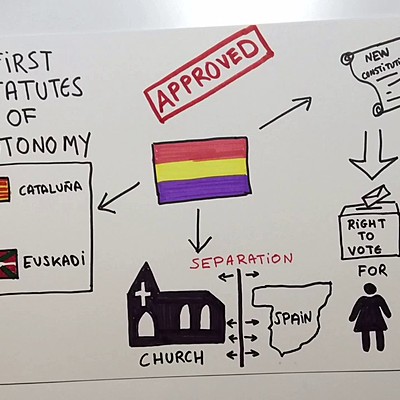 FIRST
STATUTES
OF
AUTONOMY
CATALUÑA
EUSKADI
APPROVED
NEW
CONSTITUTION
RIGHT
TO
VOTE
FOR
SEPARATION
CHURCH
SPAIN